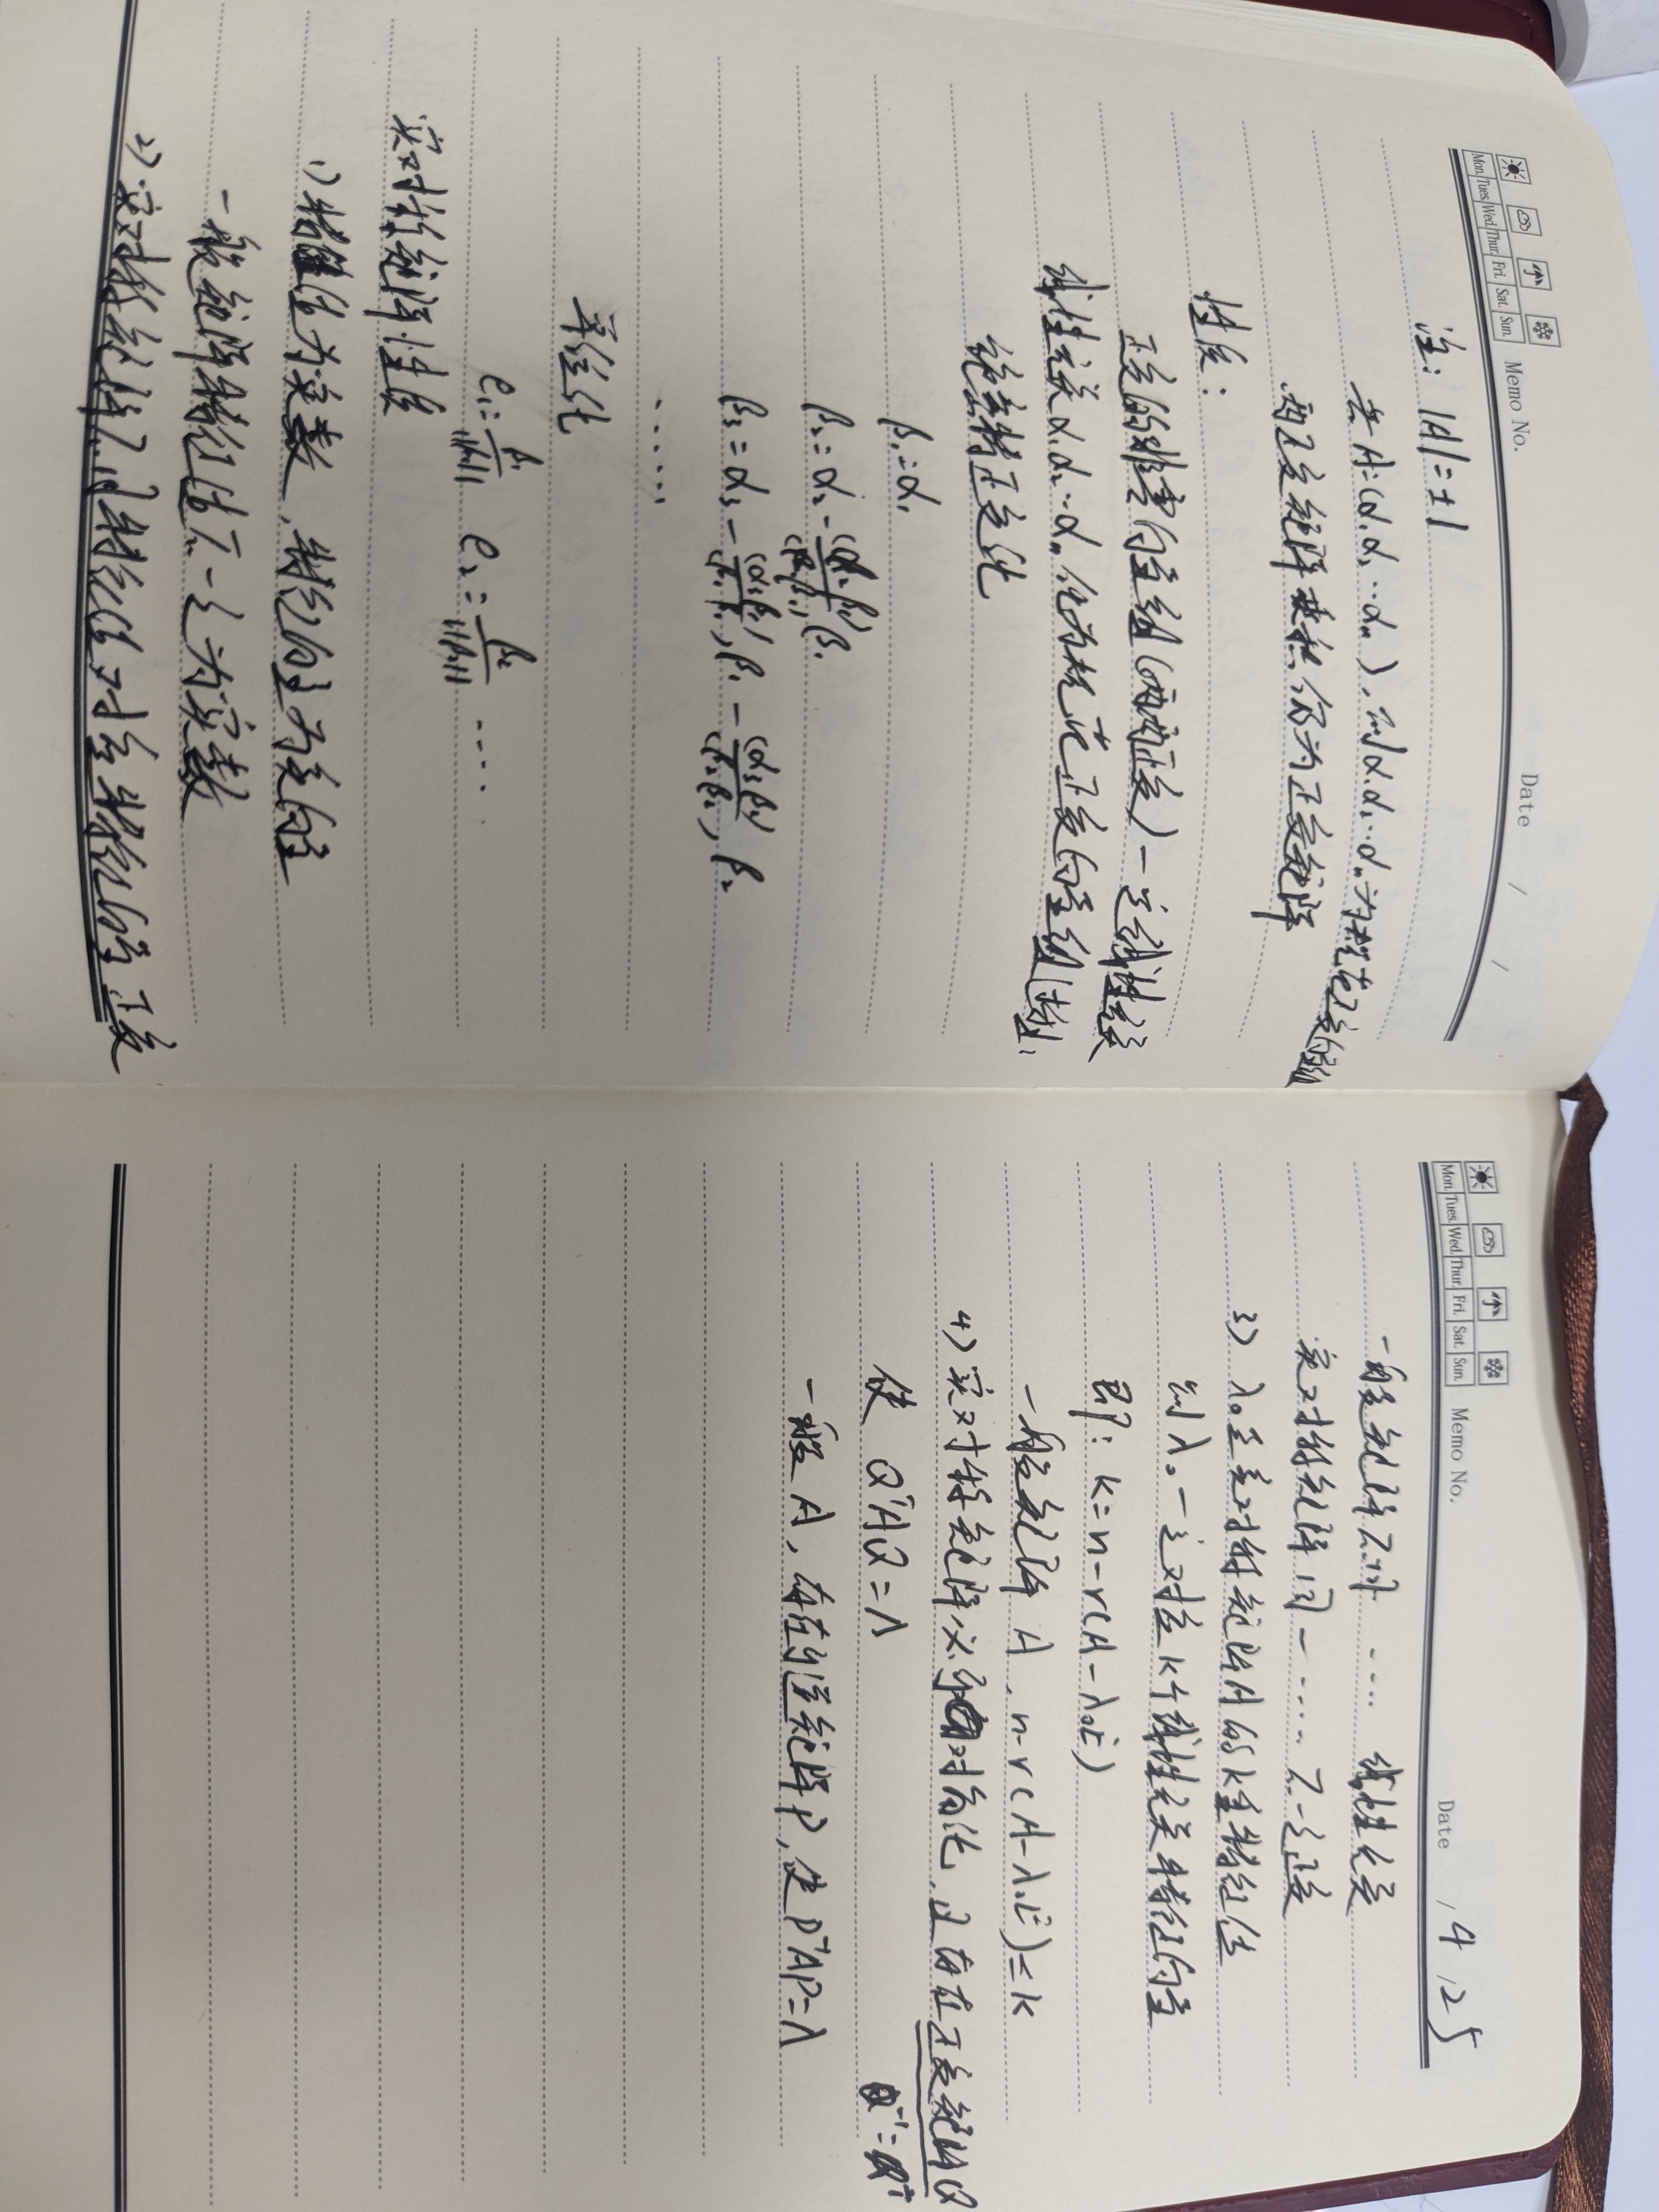 Mon. Tues. Wed. Thur. Fri. Sat. Sun.
Memo No.
Date / /
注: |A|=±1
若A=(α₁α₂…αₙ),则α₁α₂…αₙ为规范正交向量组
两正交矩阵乘积仍为正交矩阵
性质:
正交的非零向量组(两两正交)一定线性无关
线性无关α₁α₂…αₙ化为规范正交向量组
施密特正交化
β₁=α₁
β₂=α₂-(α₂,β₁)/(β₁,β₁)β₁
β₃=α₃-(α₃,β₁)/(β₁,β₁)β₁-(α₃,β₂)/(β₂,β₂)β₂
……
单位化
e₁=β₁/||β₁|| e₂=β₂/||β₂|| ….
实对称矩阵性质
1)特征值为实数,特征向量为实向量
一般矩阵特征值不一定为实数
2)实对称矩阵不同特征值对应特征向量正交
Mon. Tues. Wed. Thur. Fri. Sat. Sun.
Memo No.
Date / 4 / 25
一般矩阵不同 …. 线性无关
实对称矩阵同一 …. 不一定正交
3)λ₀是实对称矩阵A的k重特征值
则λ₀一定对应k个线性无关特征向量
即: k=n-r(A-λ₀E)
一般矩阵A,n-r(A-λ₀E)≤k
4)实对称矩阵必可相似对角化,且存在正交矩阵Q
使 Q⁻¹AQ=Λ Q⁻¹=Qᵀ
一般A,存在可逆矩阵P,使P⁻¹AP=Λ